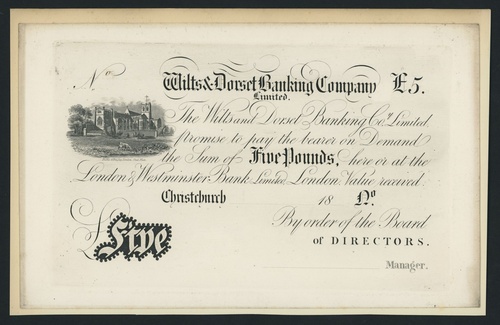 No
Wilts & Dorset Banking Company £5.
Limited.
The Wilts and Dorset Banking Coy. Limited
promise to pay the bearer on Demand
the Sum of Five Pounds, here or at the
London & Westminster Bank Limited London Value received.
Christchurch 18 No.
By order of the Board
of DIRECTORS.
£Five
Manager.